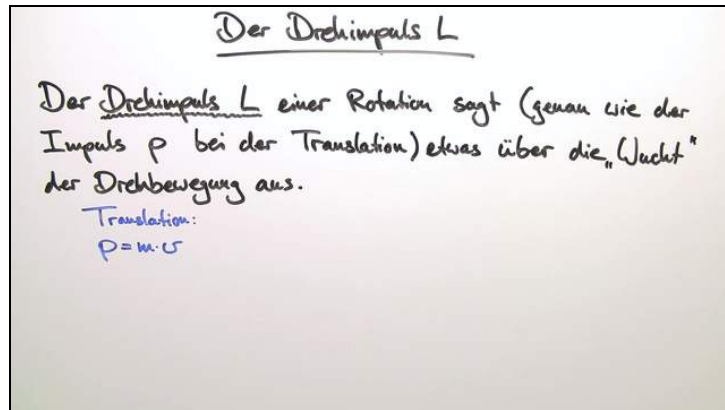 Der Drehimpuls L
Der Drehimpuls L einer Rotation sagt (genau wie der
Impuls p bei der Translation) etwas über die „Wucht“
der Drehbewegung aus.
Translation:
p=m·v